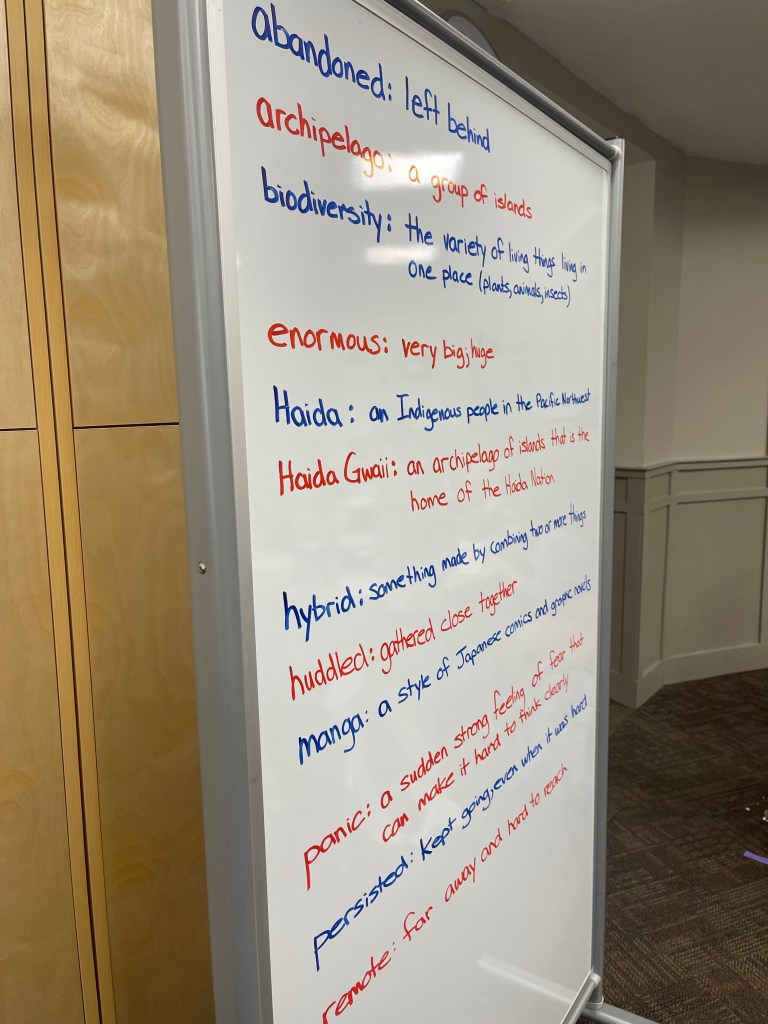 abandoned: left behind
archipelago: a group of islands
biodiversity: the variety of living things living in
one place (plants, animals, insects)
enormous: very big; huge
Haida: an Indigenous people in the Pacific Northwest
Haida Gwaii: an archipelago of islands that is the
home of the Haida Nation
hybrid: something made by combining two or more things
huddled: gathered close together
manga: a style of Japanese comics and graphic novels
panic: a sudden strong feeling of fear that
can make it hard to think clearly
persisted: kept going, even when it was hard
remote: far away and hard to reach